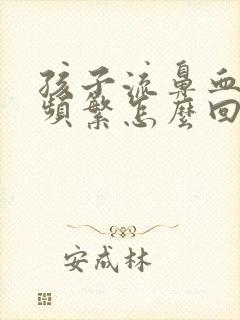 孩子流鼻血
頻繁怎麼回
安成林